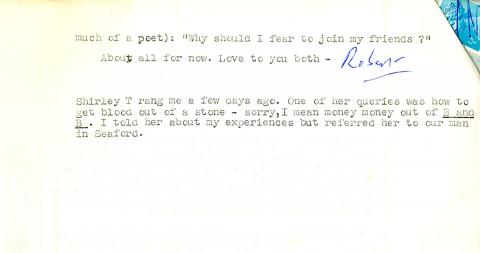 much of a poet): "Why should I fear to join my friends ?"
About all for now. Love to you both - Robert
Shirley T rang me a few days ago. One of her queries was how to
get blood out of a stone - sorry,I mean money money out of B and
B . I told her about my experiences but referred her to our man
in Seaford.